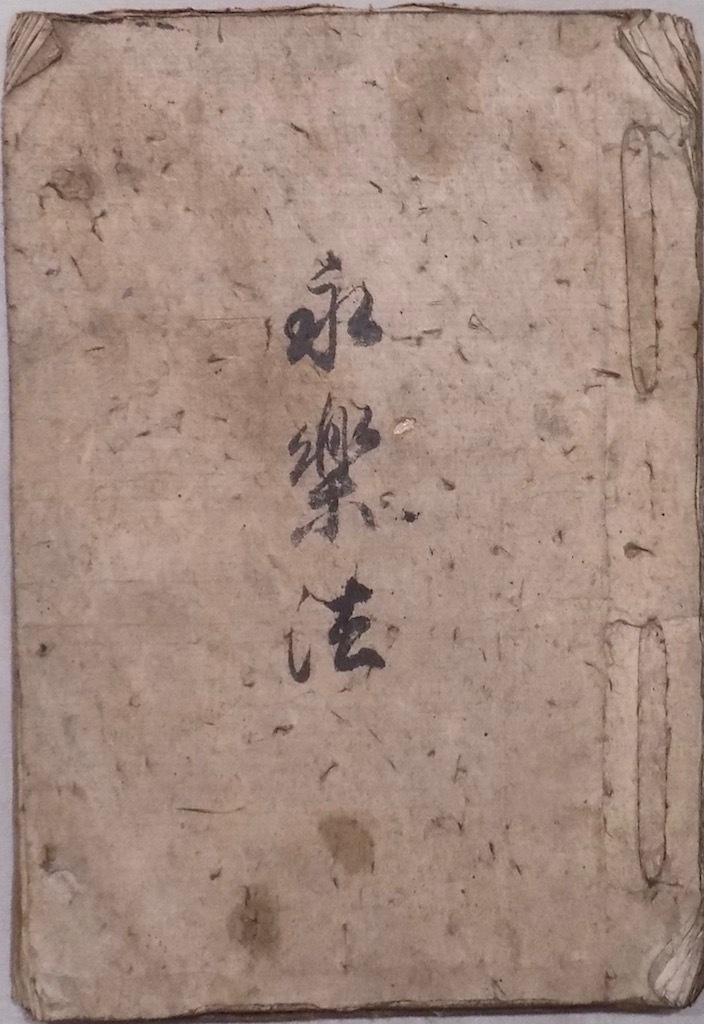 永樂法